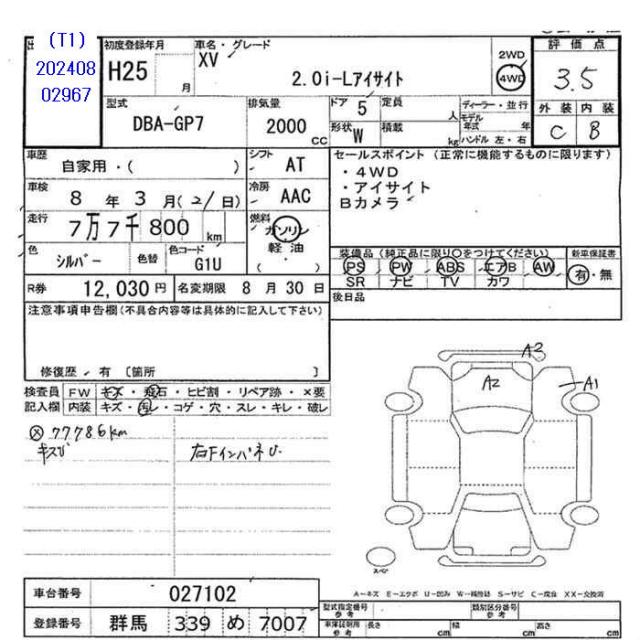 (T1)
202408
02967
初度登録年月
H25
月
車名・グレード
XV
2.0i-Lアイサイト
2WD
4WD
評価点
3.5
外装
内装
C
B
型式
DBA-GP7
排気量
2000
cc
ドア
5
定員
人
形状
W
積載
kg
ディーラー・並行
モデル年式
年
ハンドル 左・右
車歴
自家用・( )
シフト
AT
セールスポイント (正常に機能するものに限ります)
・4WD
・アイサイト
Bカメラ
車検
8 年 3 月 (21日)
冷房
AAC
走行
7万7千 800 km
燃料
ガソリン
軽油
( )
色
シルバー
色替
色コード
G1U
装備品 (純正品に限り○をつけてください)
PS PW ABS エアB AW
SR ナビ TV カワ
新車保証書
有・無
R券
12,030 円
名変期限
8 月 30 日
後日品
注意事項申告欄(不具合内容等は具体的に記入して下さい)
修復歴 有 [箇所 ]
検査員
記入欄
FW
キズ・飛石・ヒビ割・リペア跡・×要
内装
キズ・汚レ・コゲ・穴・スレ・キレ・破レ
77786km
右Fインパネ
A2
A2
A1
スペC
A-キズ E-エクボ U-凹み W-補修跡 S-サビ C-腐食 XX-交換済
車台番号
027102
登録番号
群馬 339 め 7007
型式指定番号
参考
類別区分番号
参考
車庫証明用
参考
長さ
cm
幅
cm
高さ
cm